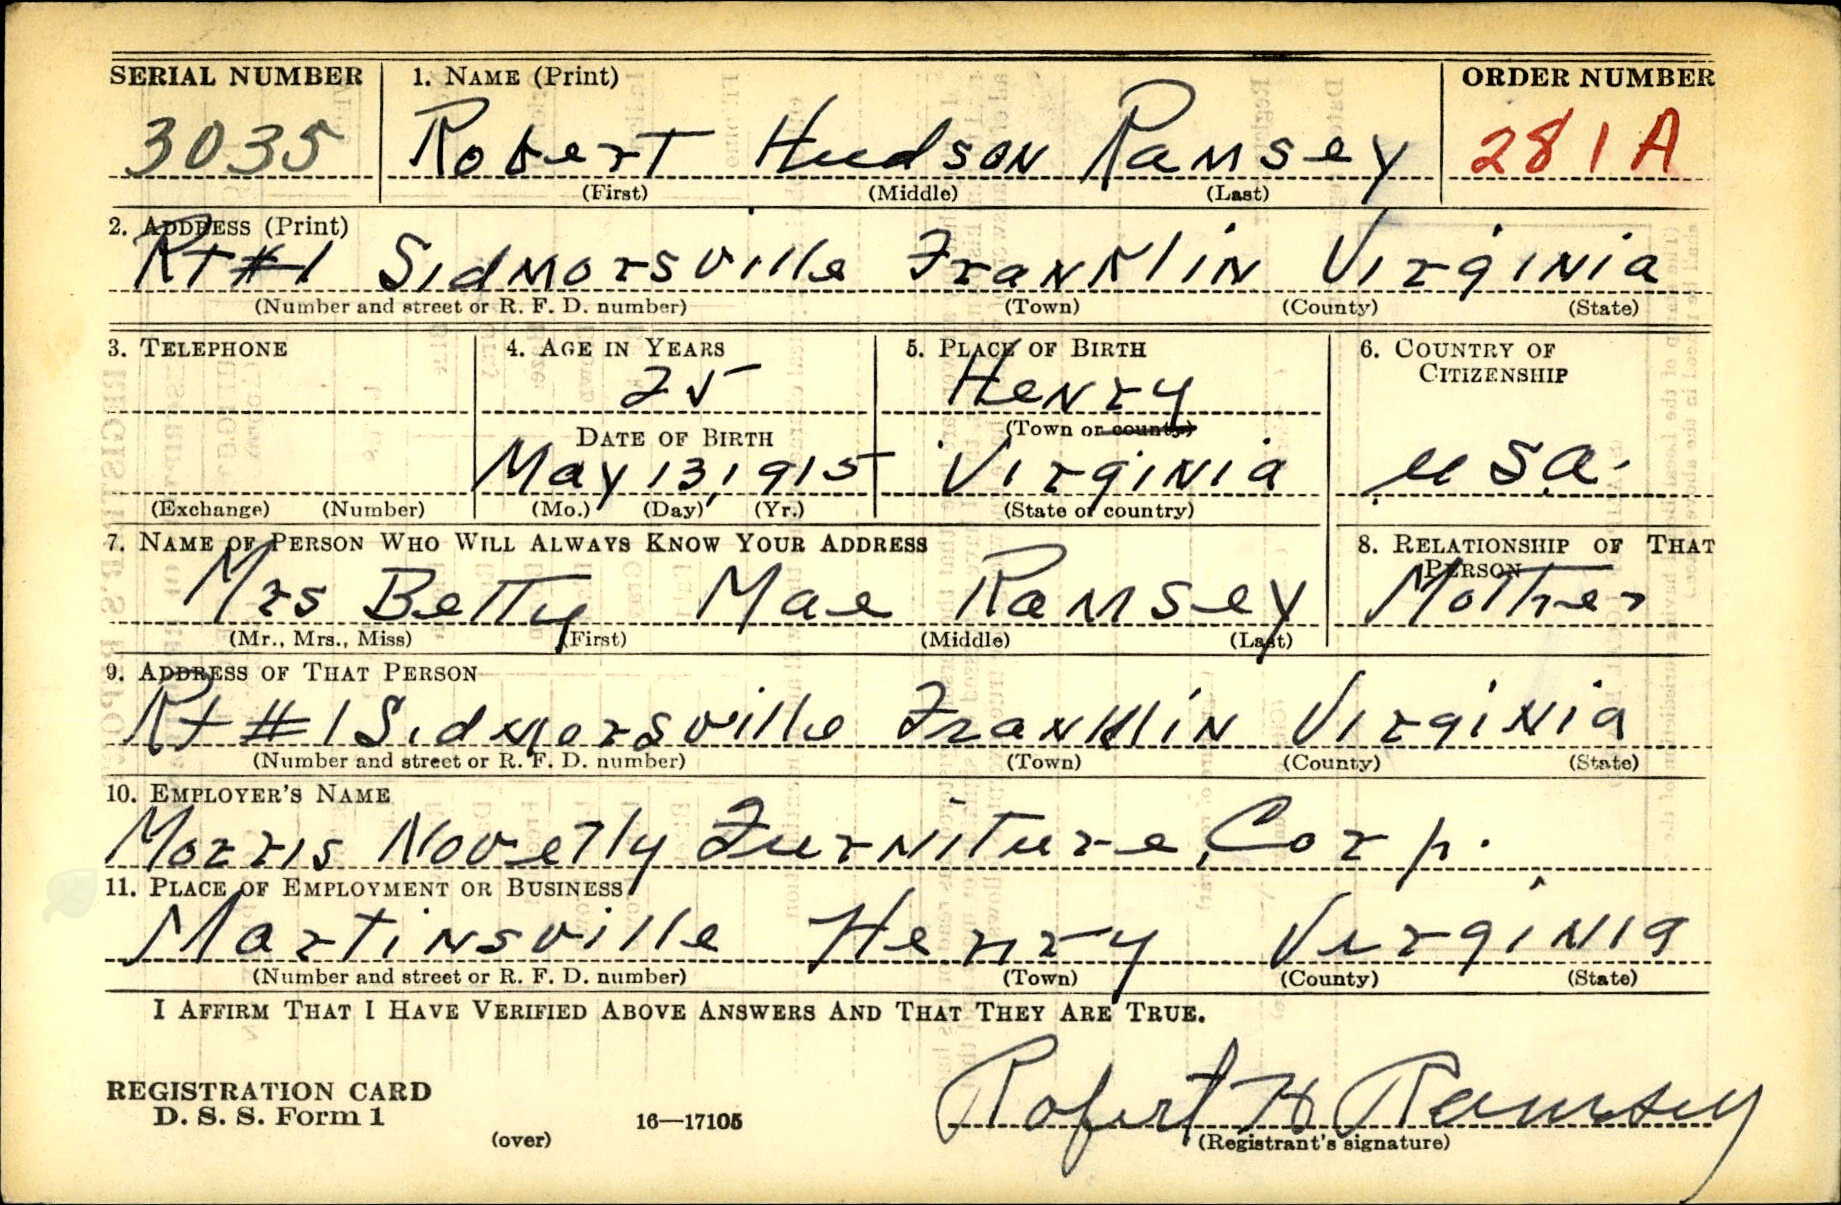 SERIAL NUMBER 1. NAME (Print) ORDER NUMBER
3035 Robert Hudson Ramsey 281A
(First) (Middle) (Last)
2. ADDRESS (Print)
Rt #1 Sidmorsville Franklin Virginia
(Number and street or R. F. D. number) (Town) (County) (State)
3. TELEPHONE 4. AGE IN YEARS 5. PLACE OF BIRTH 6. COUNTRY OF CITIZENSHIP
25 Henry
DATE OF BIRTH (Town or county)
May 13, 1915 Virginia U.S.A.
(Exchange) (Number) (Mo.) (Day) (Yr.) (State or country)
7. NAME OF PERSON WHO WILL ALWAYS KNOW YOUR ADDRESS 8. RELATIONSHIP OF THAT PERSON
Mrs Betty Mae Ramsey Mother
(Mr., Mrs., Miss) (First) (Middle) (Last)
9. ADDRESS OF THAT PERSON
Rt #1 Sidmorsville Franklin Virginia
(Number and street or R. F. D. number) (Town) (County) (State)
10. EMPLOYER'S NAME
Morris Novelty Furniture Corp.
11. PLACE OF EMPLOYMENT OR BUSINESS
Martinsville Henry Virginia
(Number and street or R. F. D. number) (Town) (County) (State)
I AFFIRM THAT I HAVE VERIFIED ABOVE ANSWERS AND THAT THEY ARE TRUE.
REGISTRATION CARD
D. S. S. Form 1 16—17105 Robert H Ramsey
(over) (Registrant's signature)